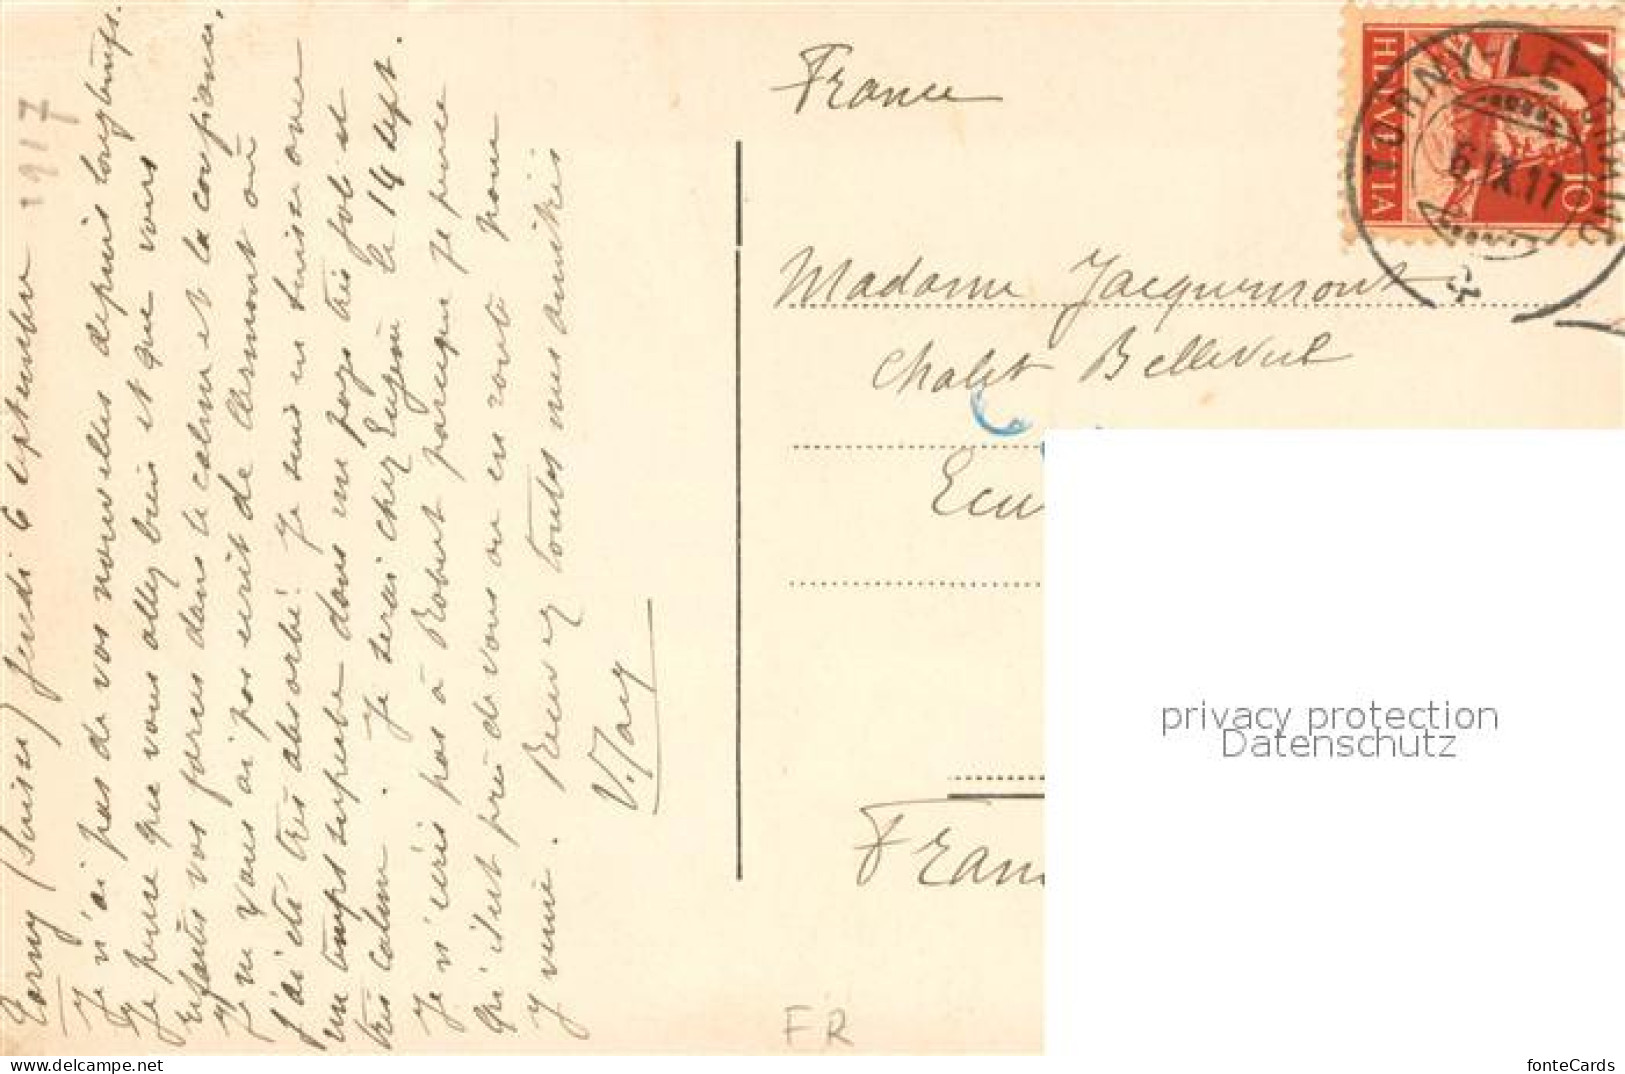 1917
Torny (Suisse) Jeudi 6 septembre
Je n'ai pas de vos nouvelles depuis longtemps.
Je pense que vous allez bien et que vous
refaites vos forces dans le calme et la confiance.
Je ne vous ai pas écrit de Clermont où
j'ai été très absorbé. Je suis en Suisse avec
un temps superbe dans un pays très joli et
très calme. Je serai chez Eugène le 14 sept.
Je n'écris pas à Robert parceque je pense
qu'il est près de vous ou en route pour
y venir. Recevez toutes mes amitiés
France
Madame Jacquemont
Chalet Bellevue
Ecu
Fran
FR
HELVETIA
10
TORNY-LE-GRAND
6.IX.17
privacy protection
Datenschutz
delcampe.net
fonteCards